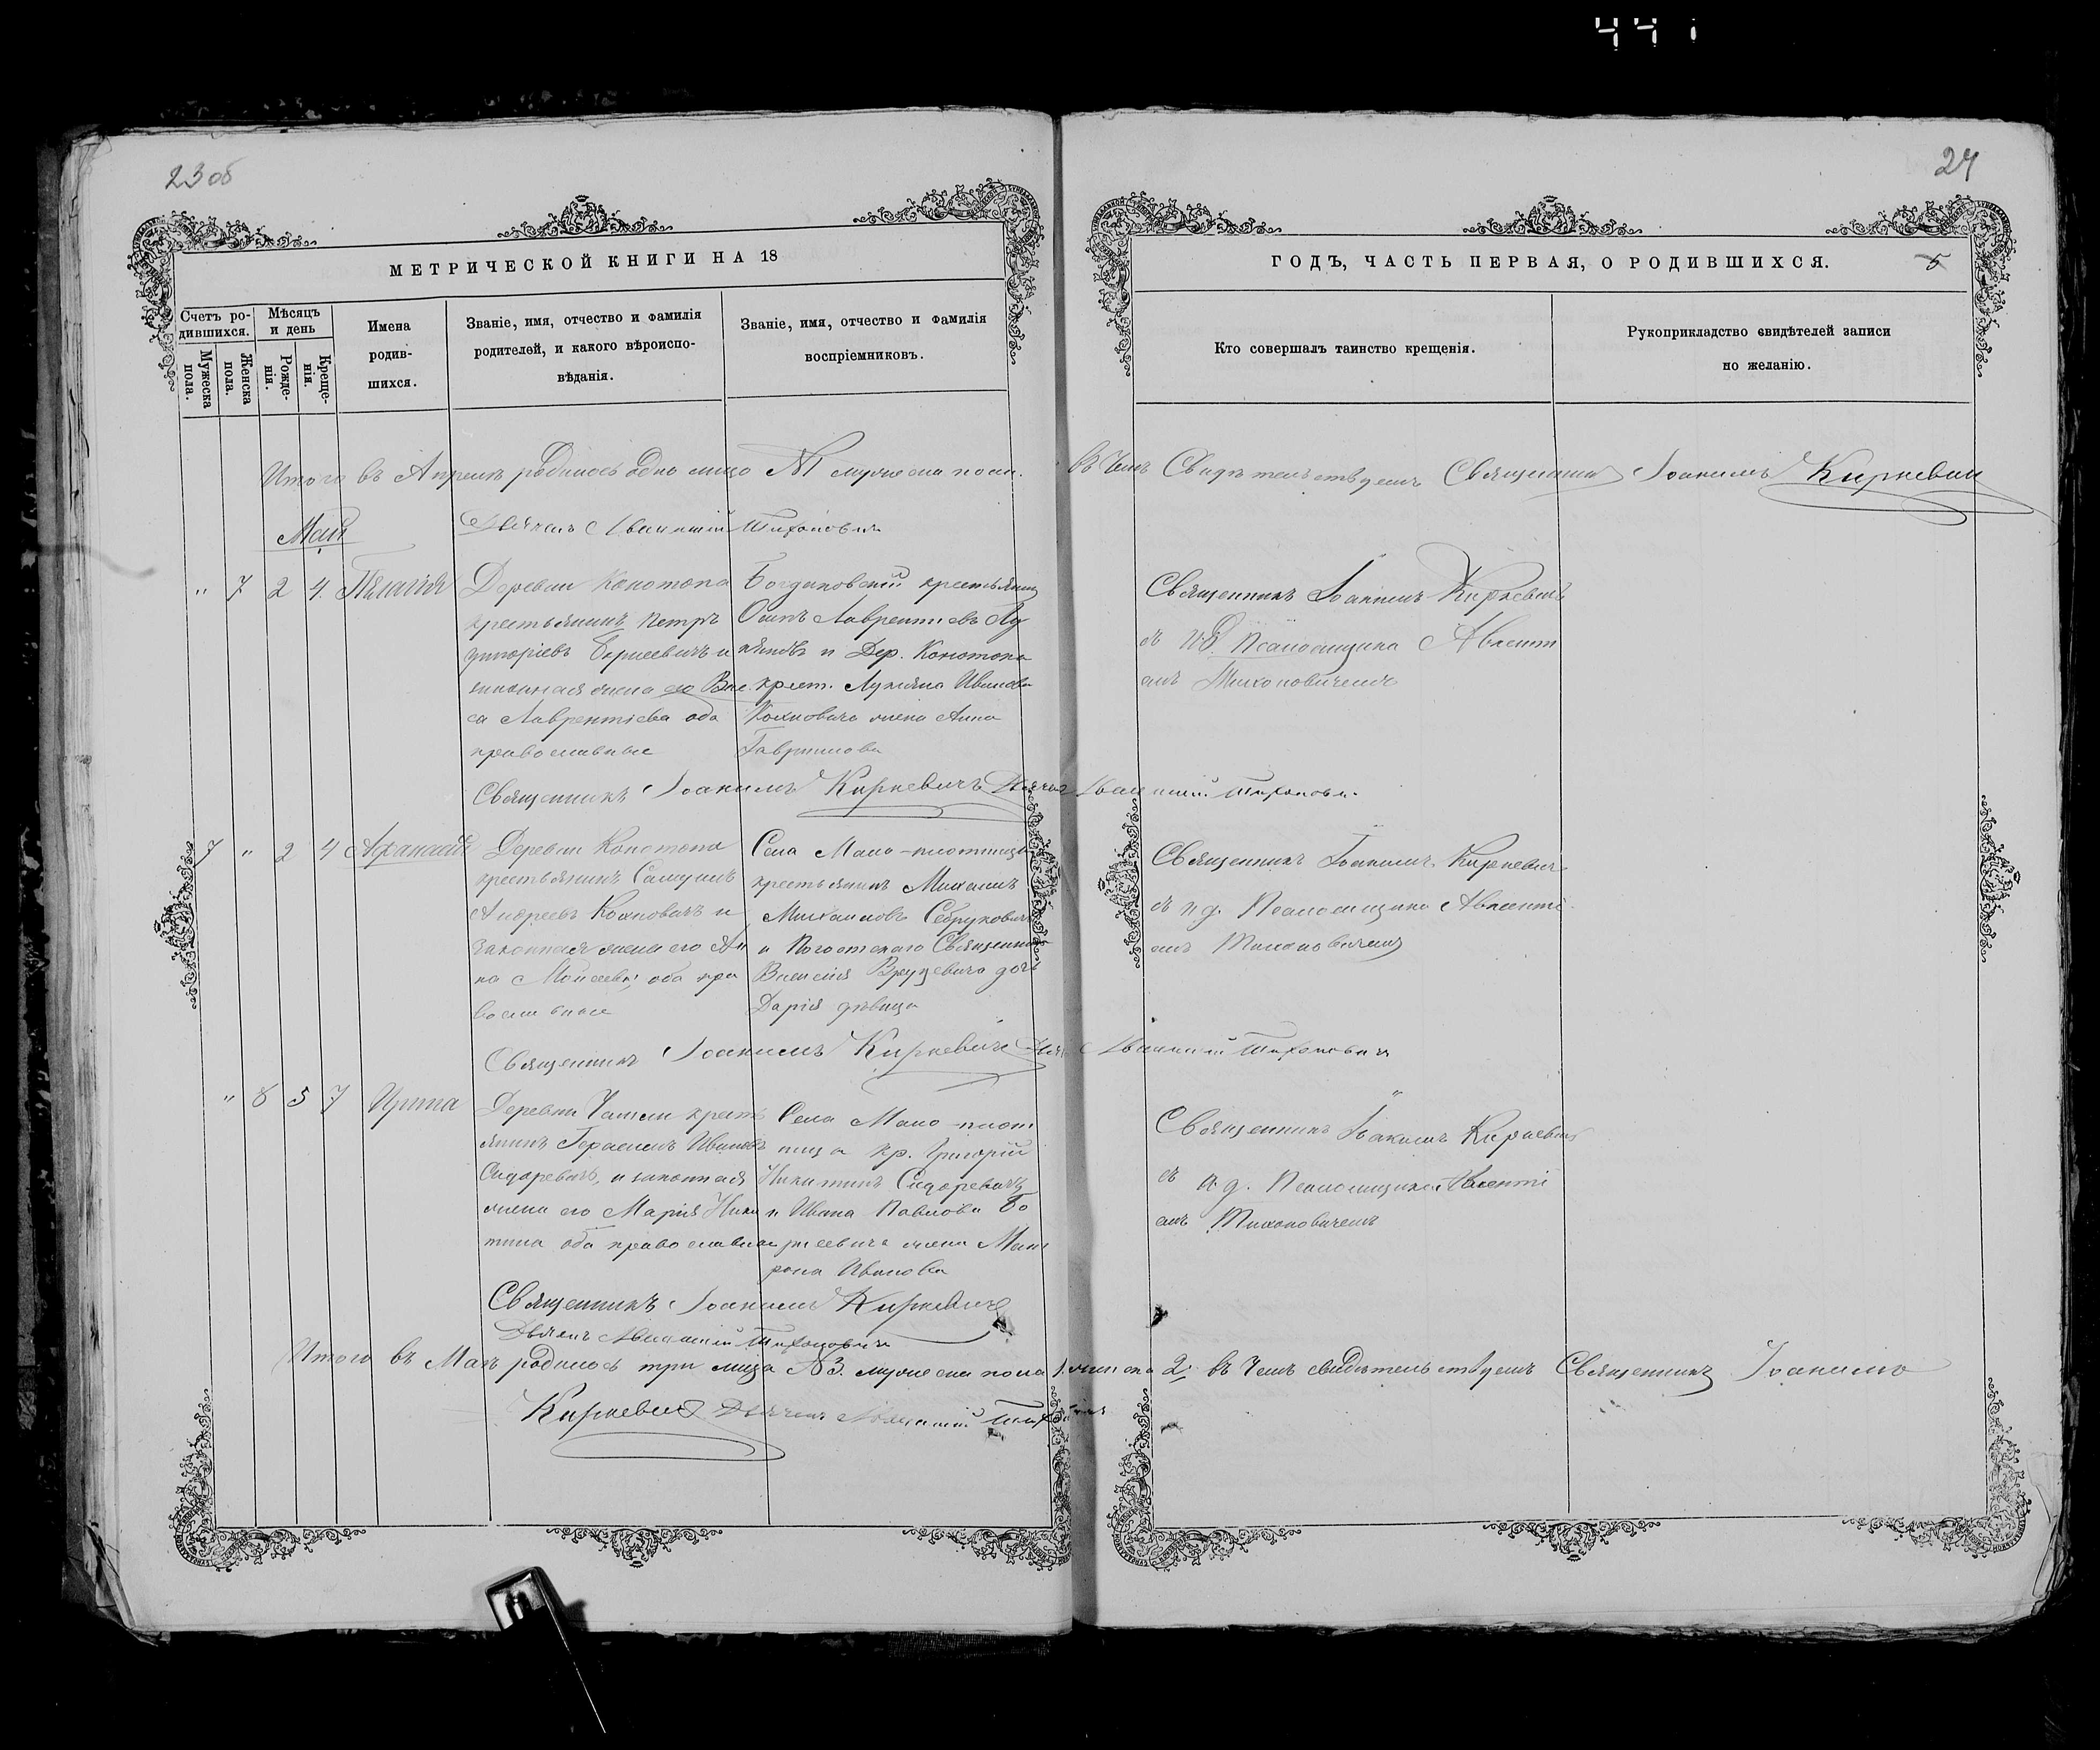 441
23 об
24
МЕТРИЧЕСКОЙ КНИГИ НА 18
ГОДЪ, ЧАСТЬ ПЕРВАЯ, О РОДИВШИХСЯ.
5
Счетъ родившихся.
Мужеска пола.
Женска пола.
Мѣсяцъ и день
Рожденія.
Крещенія.
Имена родившихся.
Званіе, имя, отчество и фамилія
родителей, и какого вѣроиспо-
вѣданія.
Званіе, имя, отчество и фамилія
воспріемниковъ.
Кто совершалъ таинство крещенія.
Рукоприкладство свидѣтелей записи
по желанію.
Итого въ Апрелѣ родилось одно лицо №1 мужеска пола. въ чемъ Свидѣтельствуемъ Священникъ Іоакимъ Киркевич
Май
Дьячекъ Авксентій Тихоновичъ
" 7 2 4. Пелагія
Деревни Конотопа
крестьянинъ Петръ
Григоріевъ и
законная жена его Вас
са Лаврентіева оба
православные
крестьянинъ
Лаврентіевъ
и Дер. Конотопа
крест. Лукяна Иванова
Кохновича жена Анна
Гаврилова
Священникъ Іоакимъ Киркевичъ
съ и.д. Псаломщика Авксенті
емъ Тихоновичемъ
Священникъ Іоакимъ Киркевичъ Дьячекъ Авксентій Тихонович
7 " 2 4 Афанасій
Деревни Конотопа
крестьянинъ Самуилъ
Андреевъ Кохновичъ и
законная жена его Ан
на Моисеева; оба пра
вославные
Села Мало-плотница
крестьянинъ Михаилъ
Михаиловъ Себруковичъ
и Погостскаго Священника
Василія дочь
Дарія дѣвица
Священникъ Іоакимъ Киркевичъ
съ и.д. Псаломщика Авксенті
емъ Тихоновичемъ
Священникъ Іоакимъ Киркевичъ Авксентій Тихоновичъ
" 8 5 7 Ирина
Деревни крест
янинъ Герасимъ Ивановъ
Сидоревичъ, и законная
жена его Марія Ники
тина оба православные
Села Мало-плот
ница кр. Григорій
Никитинъ Сидоревичъ
и Ивана Павлова Бо
рисевича жена Мат
рона Иванова
Священникъ Іоакимъ Киркевичъ
съ и.д. Псаломщика Авксенті
емъ Тихоновичемъ
Священникъ Іоакимъ Киркевичъ
Дьячекъ Авксентій Тихоновичъ
Итого въ Маѣ родилось три лица №3. мужеска пола 1. женска 2; въ чемъ свидѣтельствуемъ Священникъ Іоакимъ
Киркевич Дьячекъ Авксентій Тихонович